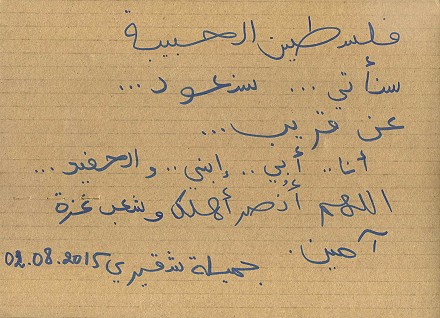 فلسطين الحبيبة
سنأتي ... سنعود ...
عن قريب ...
أنا .. أبي .. إبني .. والحفيد ...
اللهم أنصر أهلك وشعب غزة
آمين .
جميلة شقيري 02.08.2015